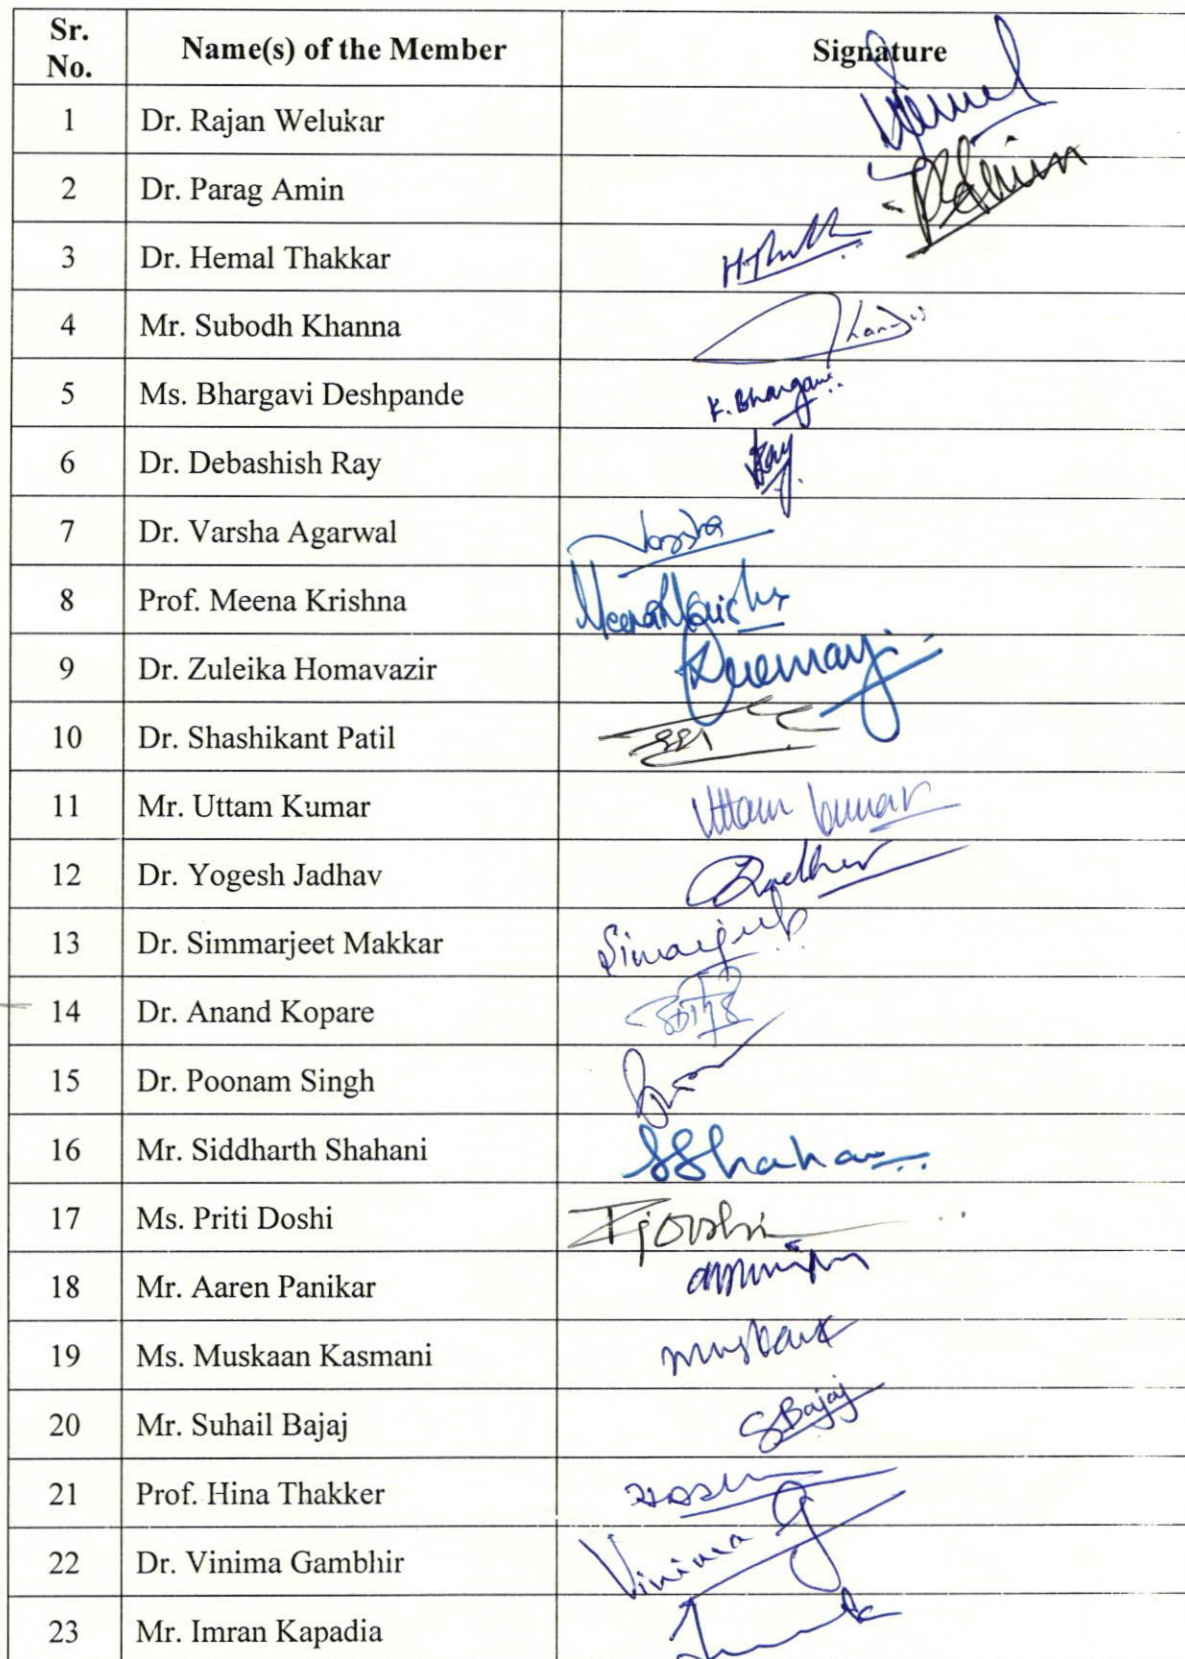 Sr. No. Name(s) of the Member Signature
1 Dr. Rajan Welukar
2 Dr. Parag Amin
3 Dr. Hemal Thakkar
4 Mr. Subodh Khanna
5 Ms. Bhargavi Deshpande K. Bhargavi
6 Dr. Debashish Ray Ray
7 Dr. Varsha Agarwal Varsha
8 Prof. Meena Krishna
9 Dr. Zuleika Homavazir
10 Dr. Shashikant Patil
11 Mr. Uttam Kumar Uttam Kumar
12 Dr. Yogesh Jadhav
13 Dr. Simmarjeet Makkar
14 Dr. Anand Kopare
15 Dr. Poonam Singh
16 Mr. Siddharth Shahani
17 Ms. Priti Doshi
18 Mr. Aaren Panikar
19 Ms. Muskaan Kasmani
20 Mr. Suhail Bajaj SBajaj
21 Prof. Hina Thakker
22 Dr. Vinima Gambhir Vinima G
23 Mr. Imran Kapadia